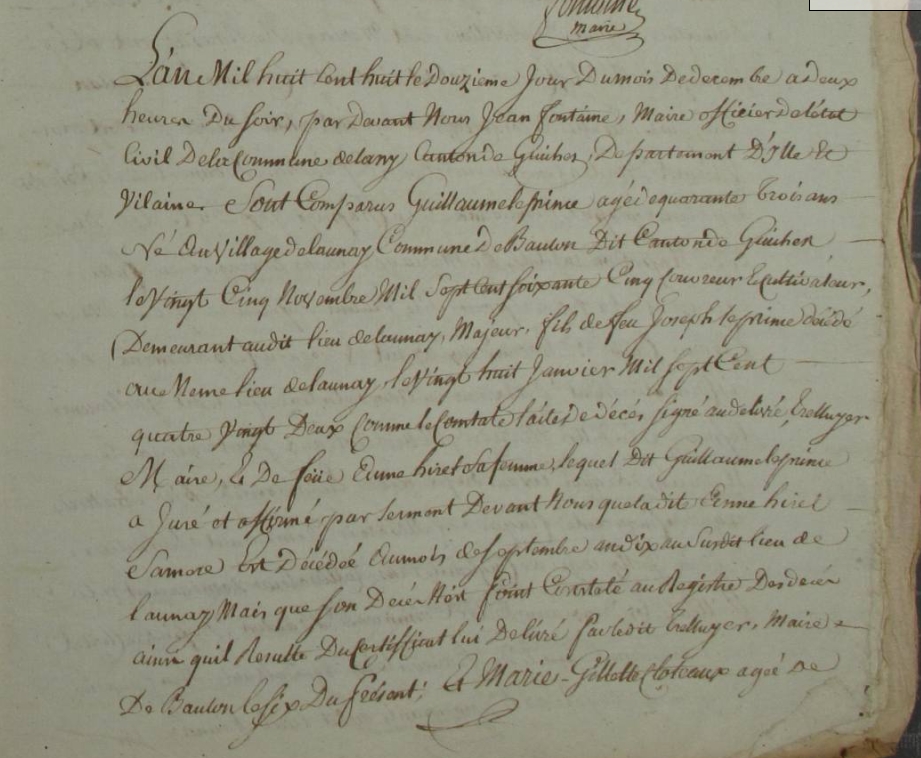 fontaine
maire
L'an Mil huit Cent huit le Douzieme Jour Du mois De decembe a deux
heures Du soir, par Devant Nous Jean fontaine, Maire officier de l'état
Civil De la Commune de lassy Canton de Guichen, Departement D'Ille Et
Vilaine Sont Comparus Guillaume leprince agé de quarante trois ans
Né au Village de launay Commune De Baulon Dit Canton de Guichen
le Vingt Cinq Novembre Mil Sept Cent soixante Cinq Couvreur & Cultivateur,
Demeurant audit lieu de launay, Majeur, fils de feu Joseph leprince décédé
au Meme lieu de launay le Vingt huit Janvier Mil sept Cent
quatre Vingt Deux Comme le Constate l'acte de décés signé au delivré
Maire, & De feüe Anne hirel Sa femme, lequel Dit Guillaume leprince
a Juré et affirmé par serment Devant Nous que ladit Anne hirel
Sa mere Est Décédée Au mois de septembre an dix au Susdit lieu de
launay Mais que son Décés N'est point Constaté au Registre Des decés
ainsi quil Resulte Du Certifficat lui Delivré par ledit Maire
De Baulon le six Du présent; Et Marie-Gillette Cloteaux ageé De